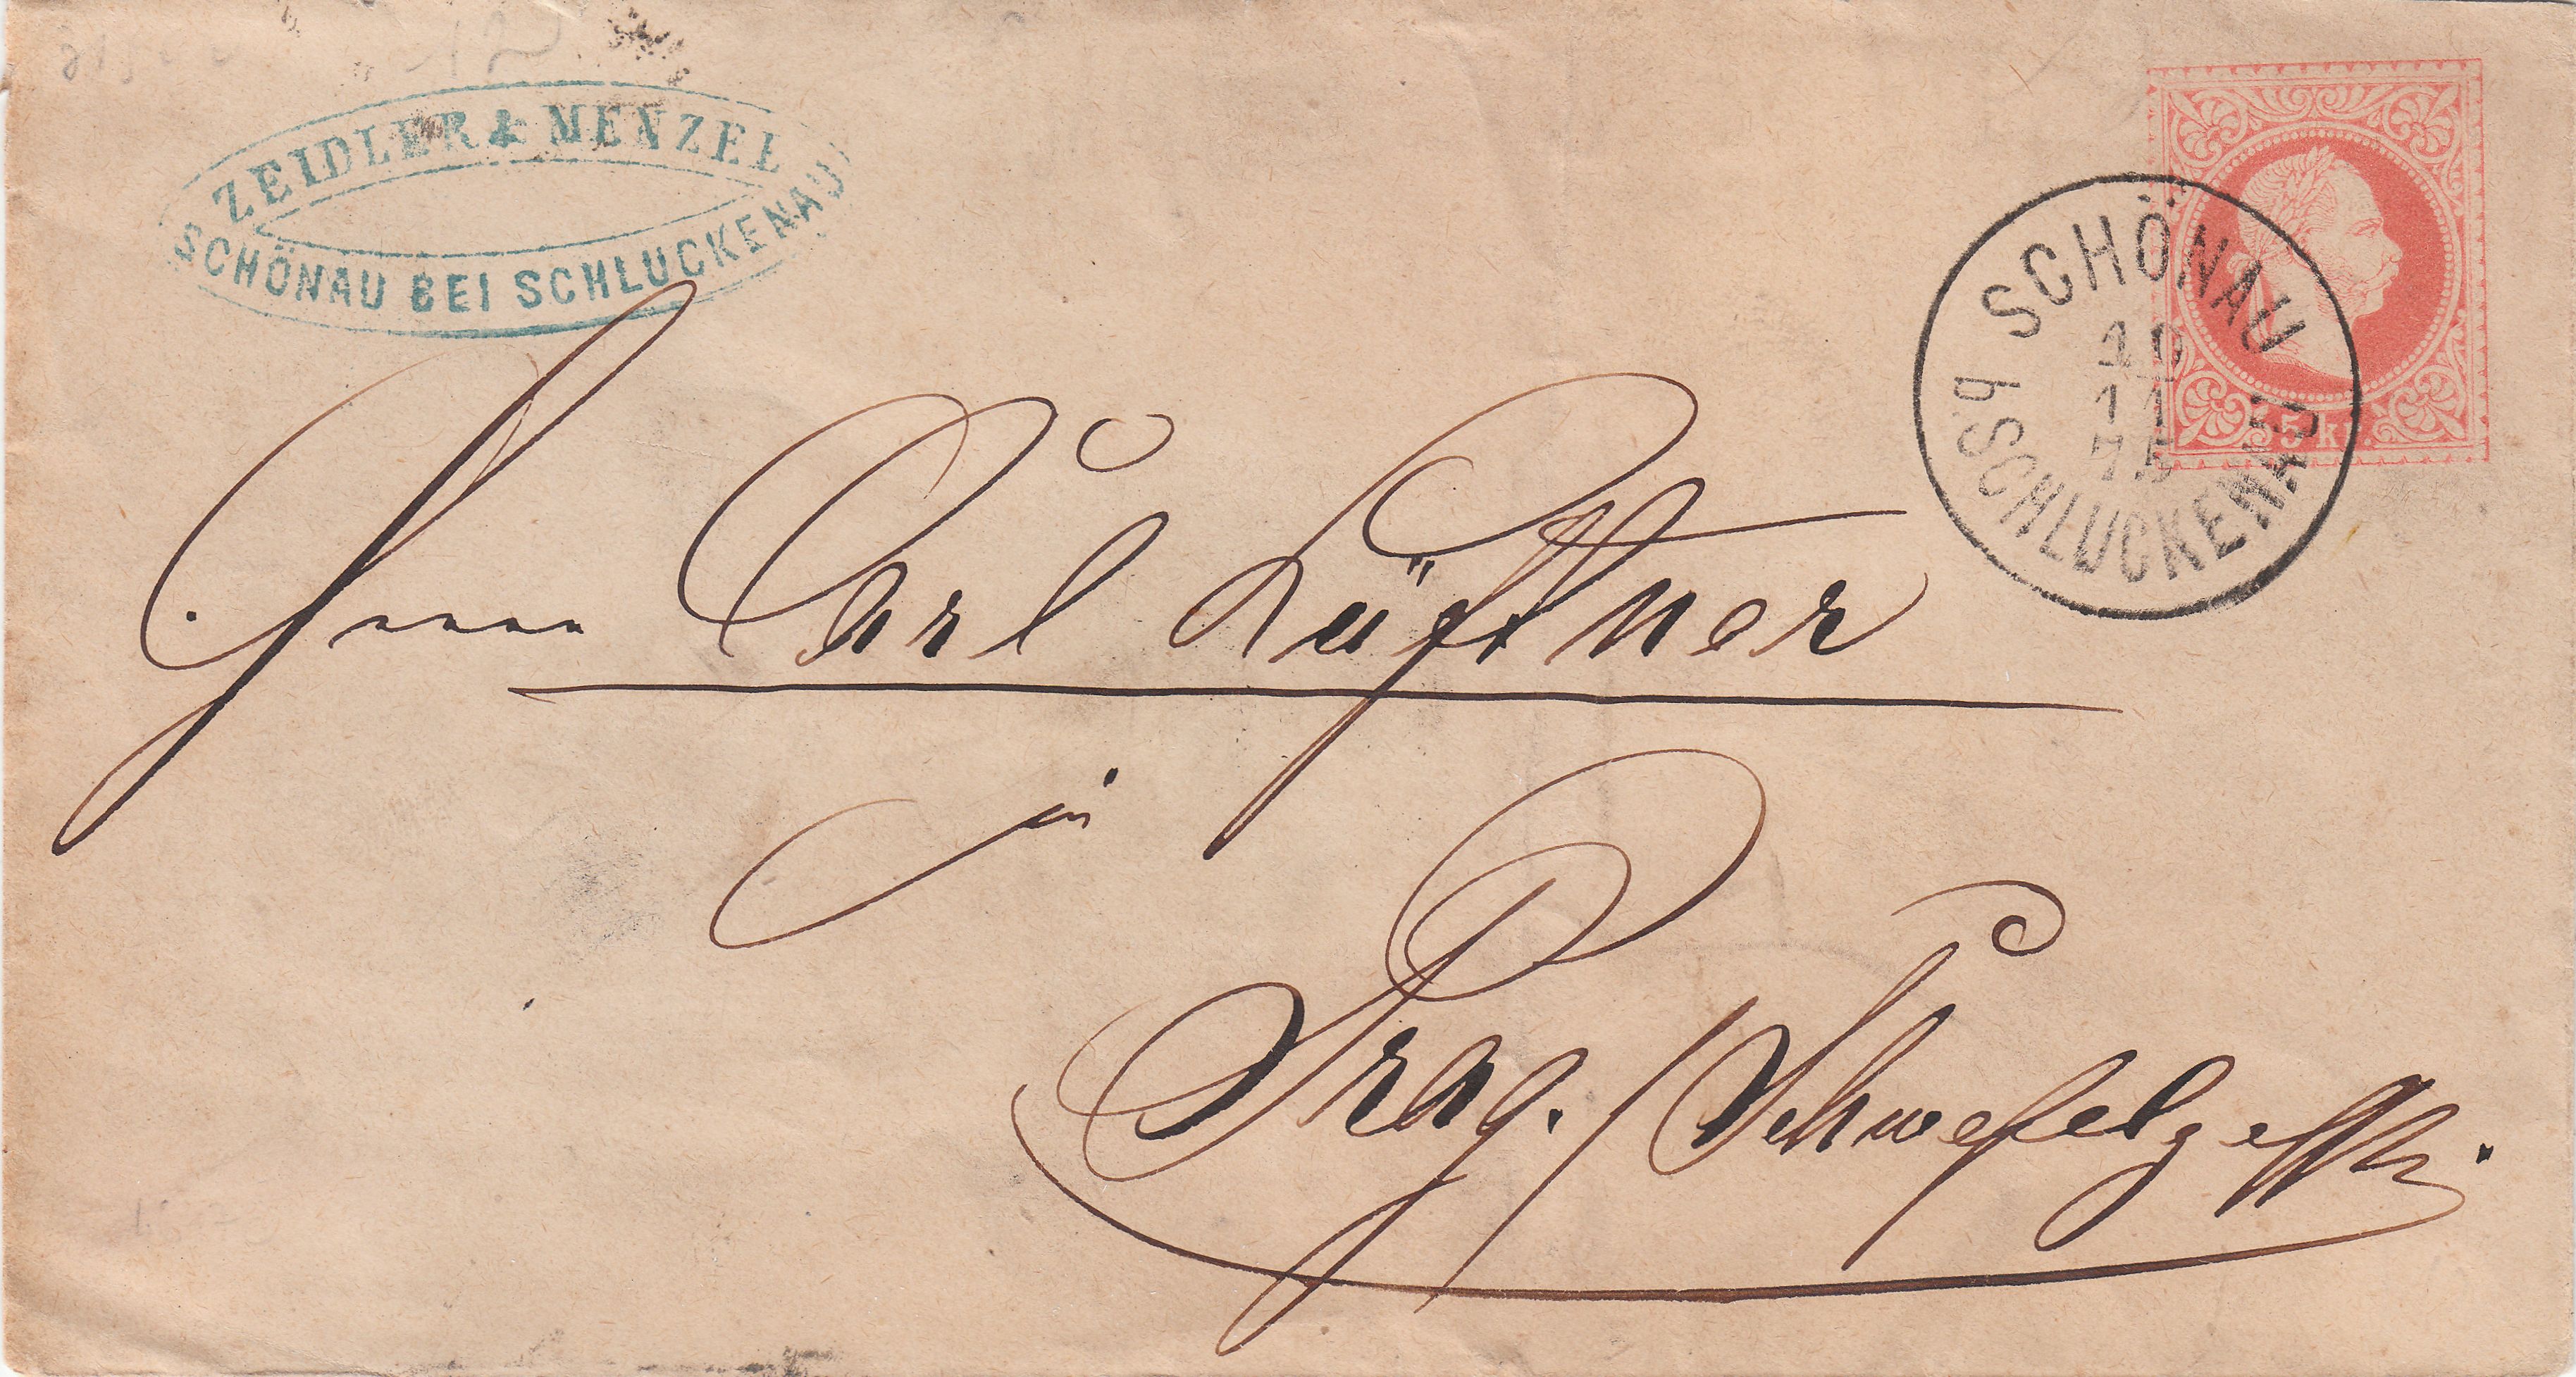 ZEIDLER & MENZEL
SCHÖNAU BEI SCHLUCKENAU
5 kr.
SCHÖNAU
10
11
75
b SCHLUCKENAU
Herrn Carl Lüftner
in
Prag. Schwefelgasse.